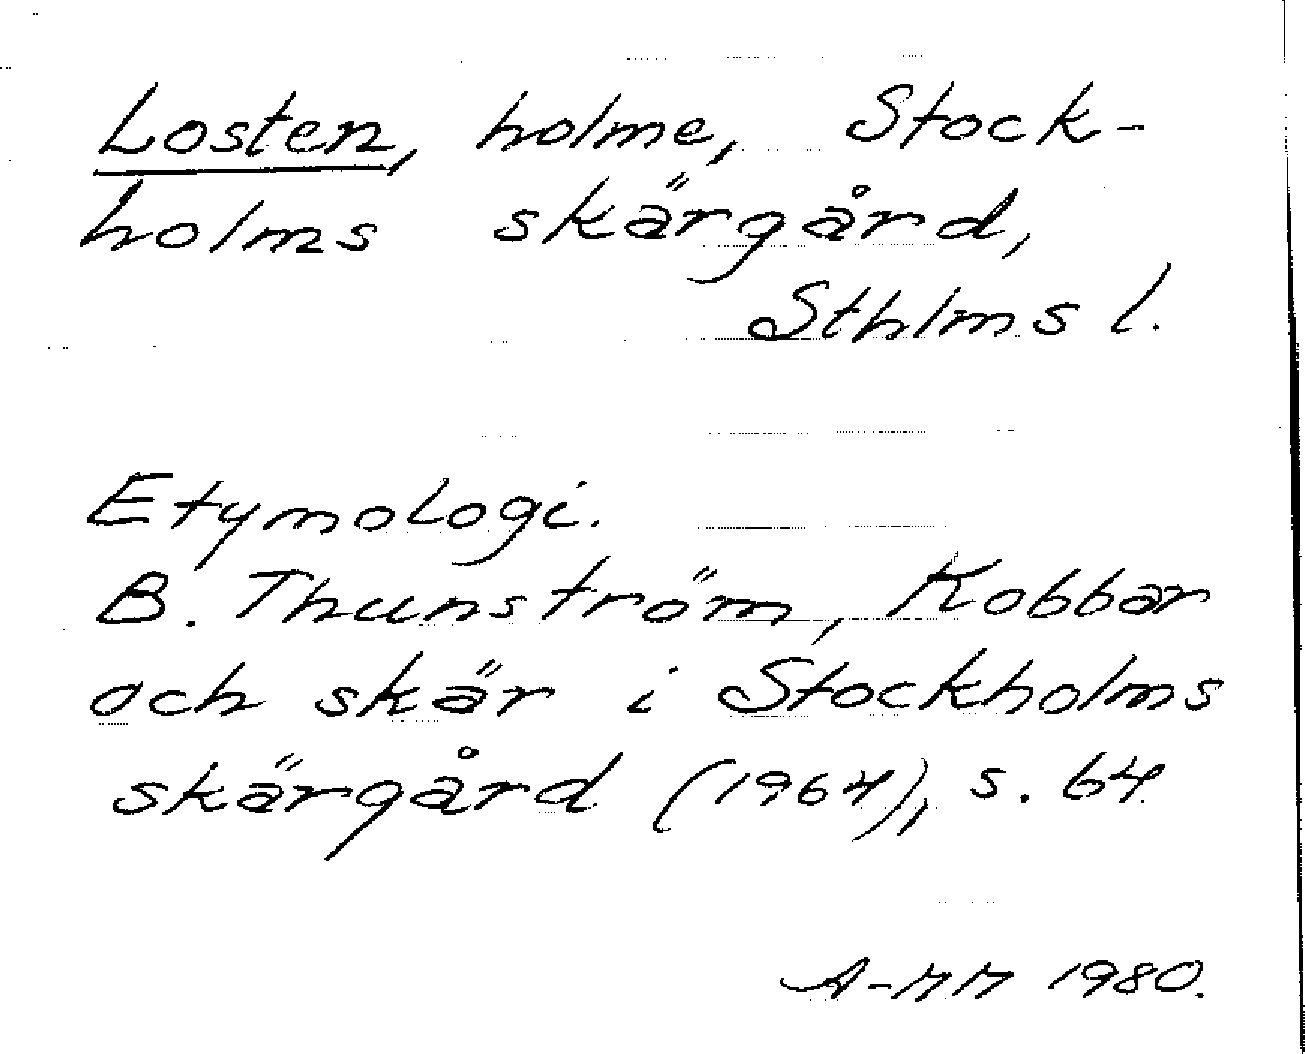 Losten, holme, Stock-
holms skärgård,
Sthlms l.
Etymologi.
B. Thunström, Kobbar
och skär i Stockholms
skärgård (1964), s. 64.
A-MM 1980.